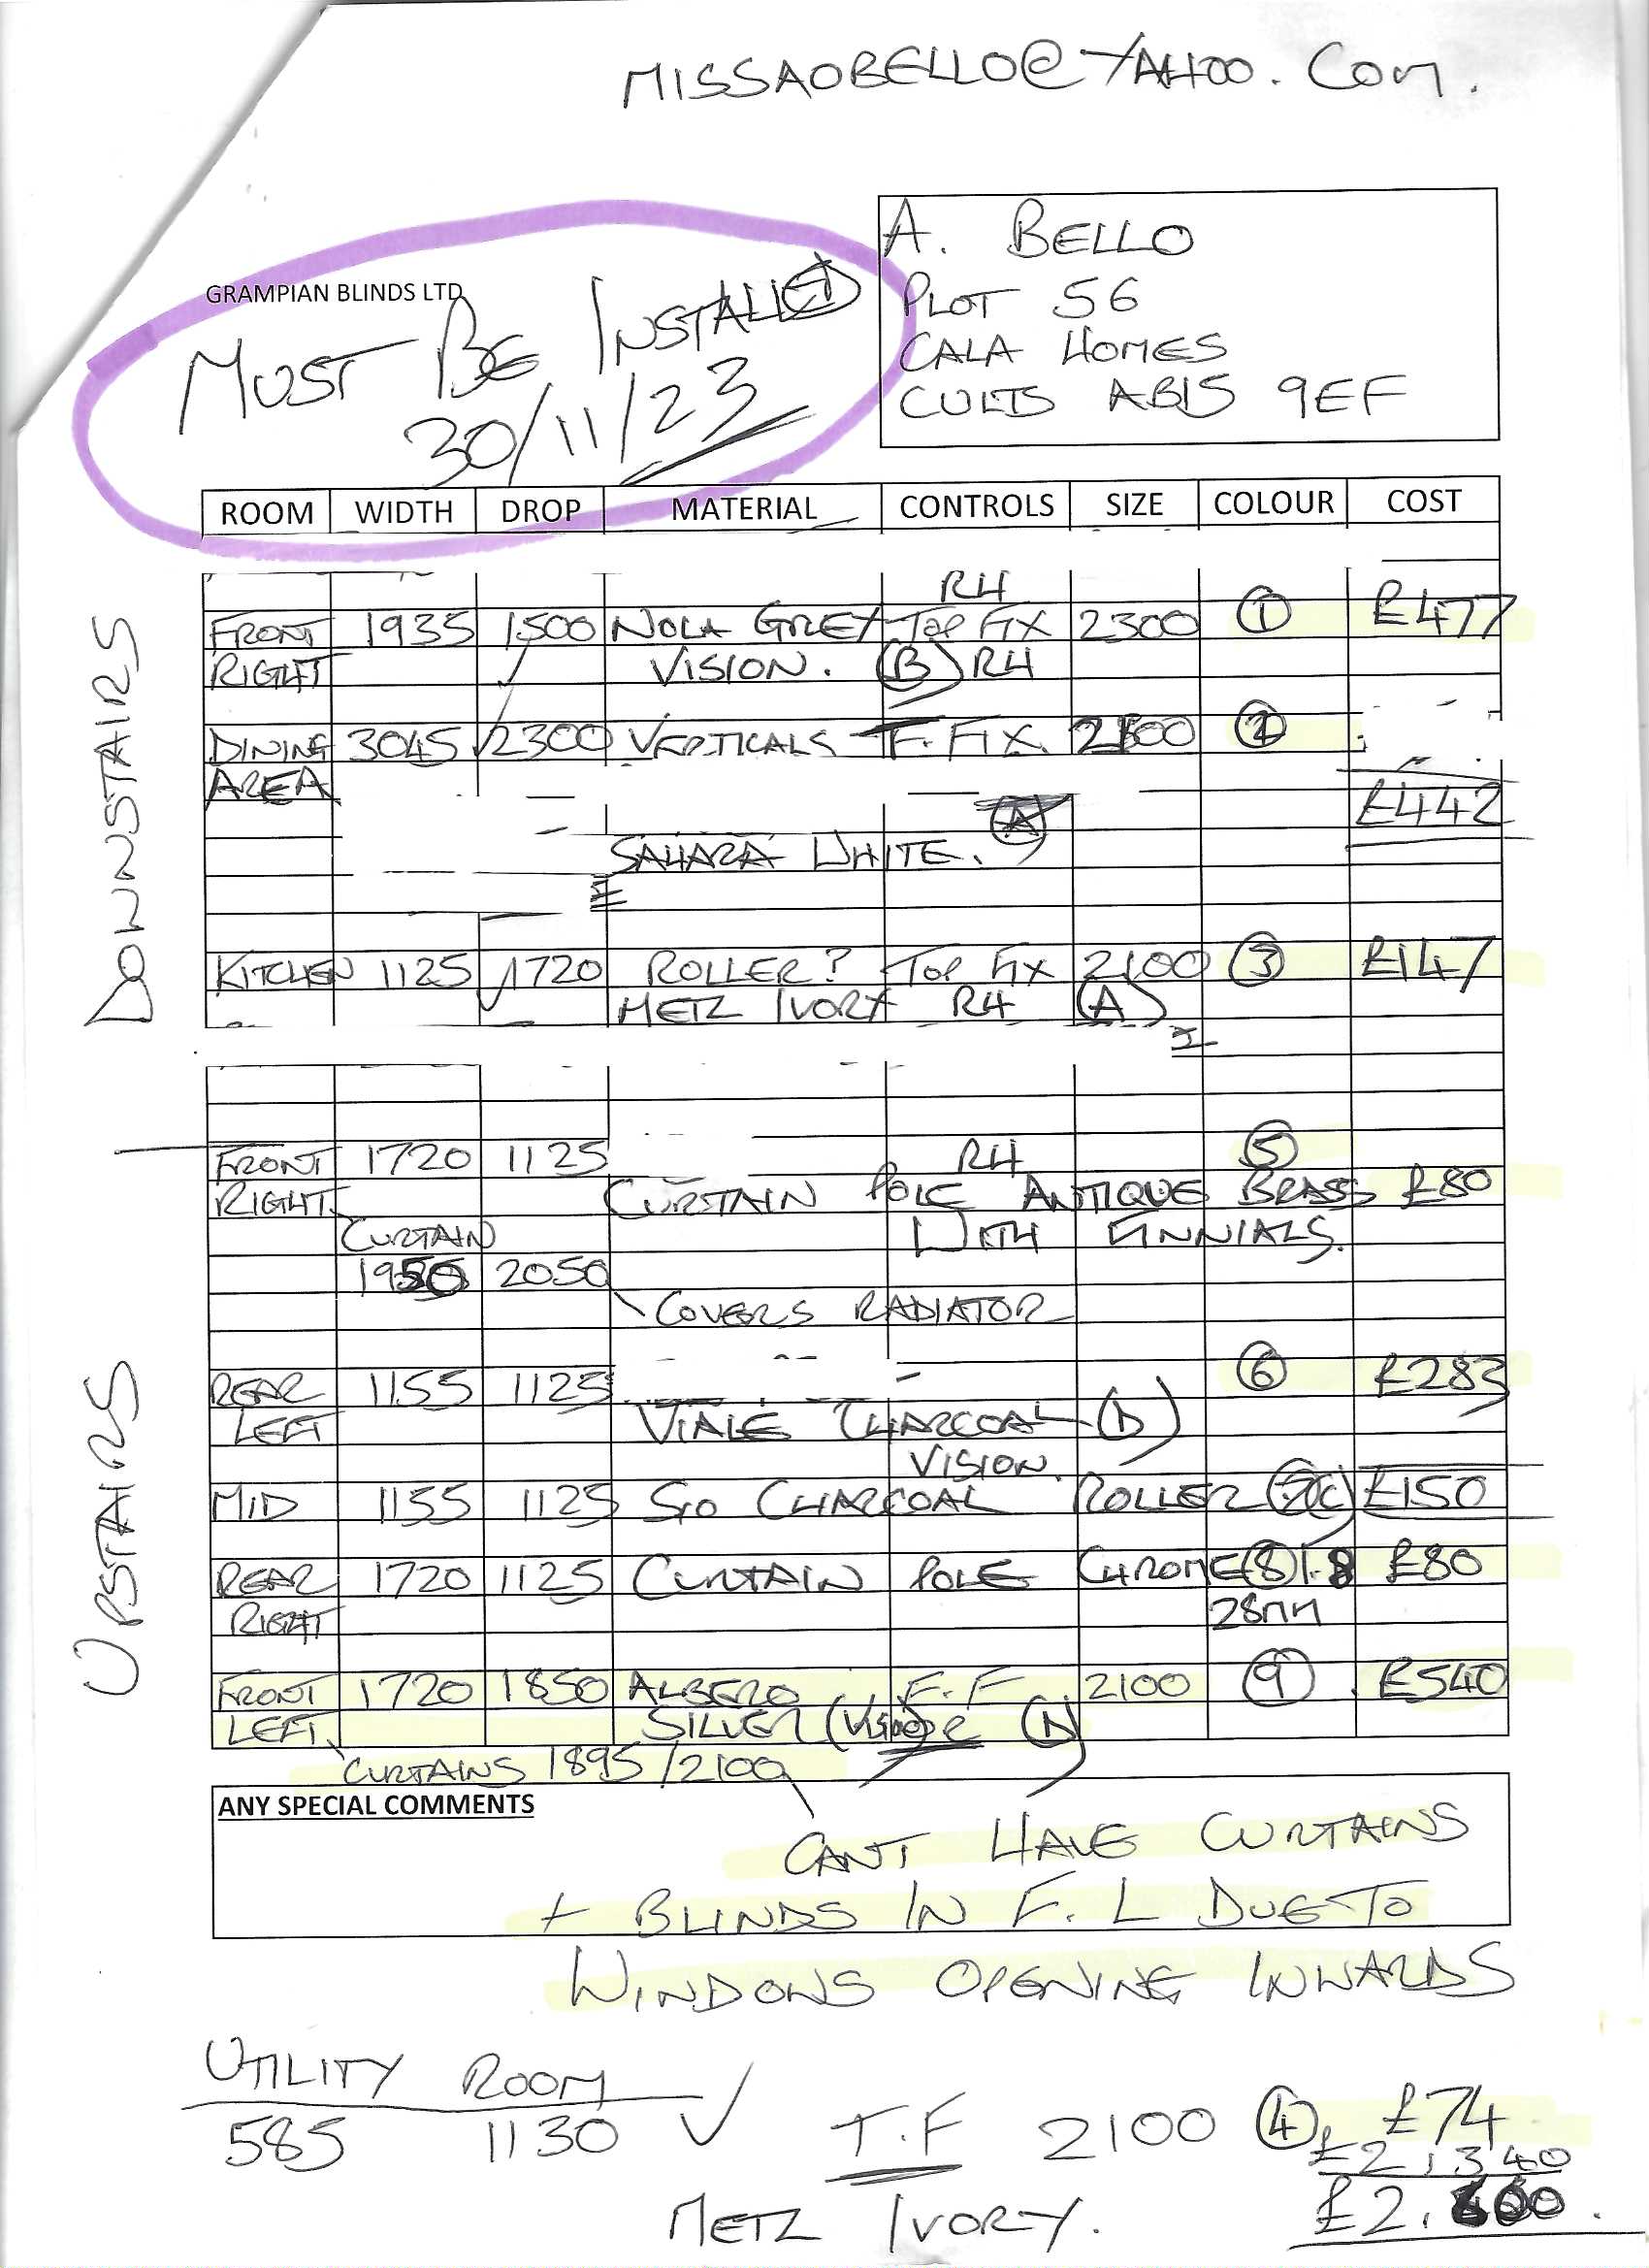 MISSAOBELLO@YAHOO.COM.
A. BELLO
PLOT 56
CALA HOMES
CULTS AB15 9EF
GRAMPIAN BLINDS LTD
MUST BE INSTALLED
30/11/23
ROOM WIDTH DROP MATERIAL CONTROLS SIZE COLOUR COST
DOWNSTAIRS
RH
FRONT 1935 1500 NOLA GREY TOP FIX 2300 1 £477
RIGHT VISION. (B) RH
DINING 3045 2300 VERTICALS F. FIX. 2
AREA
£442
A
SAHARA WHITE.
KITCHEN 1125 1720 ROLLER? TOP FIX 2100 3 £147
METZ IVORY RH (A)
UPSTAIRS
FRONT 1720 1125 RH 5
RIGHT CURTAIN POLE ANTIQUE BRASS £80
CURTAIN WITH FINNIALS.
2050
COVERS RADIATOR
REAR 1155 1125 6 £283
LEFT VIALE CHARCOAL
VISION.
MID 1155 1125 S/O CHARCOAL ROLLER £150
REAR 1720 1125 CURTAIN POLE CHROME 8 1.8 £80
RIGHT 28MM
FRONT 1720 1850 ALBERO F.F 2100 9 £540
LEFT SILVER
CURTAINS 1895/2100
ANY SPECIAL COMMENTS
CANT HAVE CURTAINS
+ BLINDS IN F.L DUE TO
WINDOWS OPENING INWARDS
UTILITY ROOM
585 1130 T.F 2100 4 £74
£2,340
METZ IVORY.